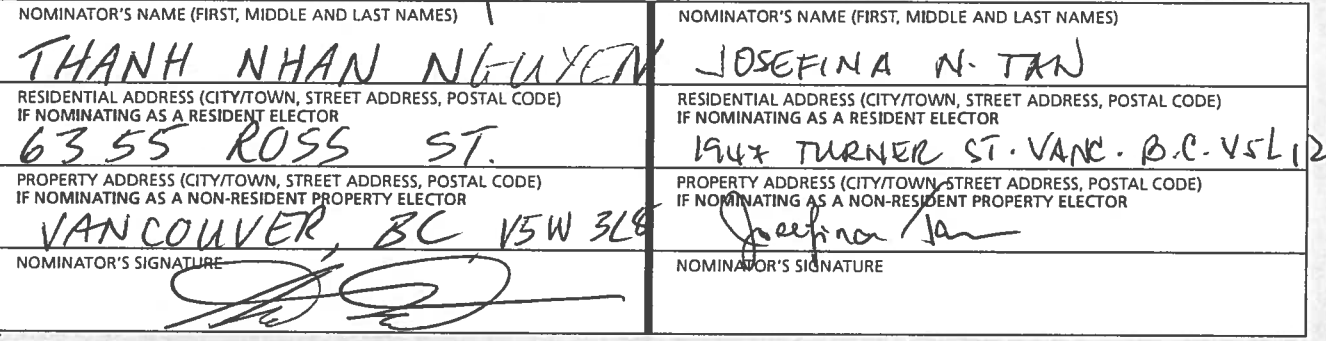 NOMINATOR'S NAME (FIRST, MIDDLE AND LAST NAMES)
THANH NHAN NGUYEN
RESIDENTIAL ADDRESS (CITY/TOWN, STREET ADDRESS, POSTAL CODE)
IF NOMINATING AS A RESIDENT ELECTOR
6355 ROSS ST.
PROPERTY ADDRESS (CITY/TOWN, STREET ADDRESS, POSTAL CODE)
IF NOMINATING AS A NON-RESIDENT PROPERTY ELECTOR
VANCOUVER, BC V5W 3L8
NOMINATOR'S SIGNATURE
NOMINATOR'S NAME (FIRST, MIDDLE AND LAST NAMES)
JOSEFINA N. TAN
RESIDENTIAL ADDRESS (CITY/TOWN, STREET ADDRESS, POSTAL CODE)
IF NOMINATING AS A RESIDENT ELECTOR
TURNER ST. VANC. B.C. V5L
PROPERTY ADDRESS (CITY/TOWN, STREET ADDRESS, POSTAL CODE)
IF NOMINATING AS A NON-RESIDENT PROPERTY ELECTOR
Josefina Tan
NOMINATOR'S SIGNATURE